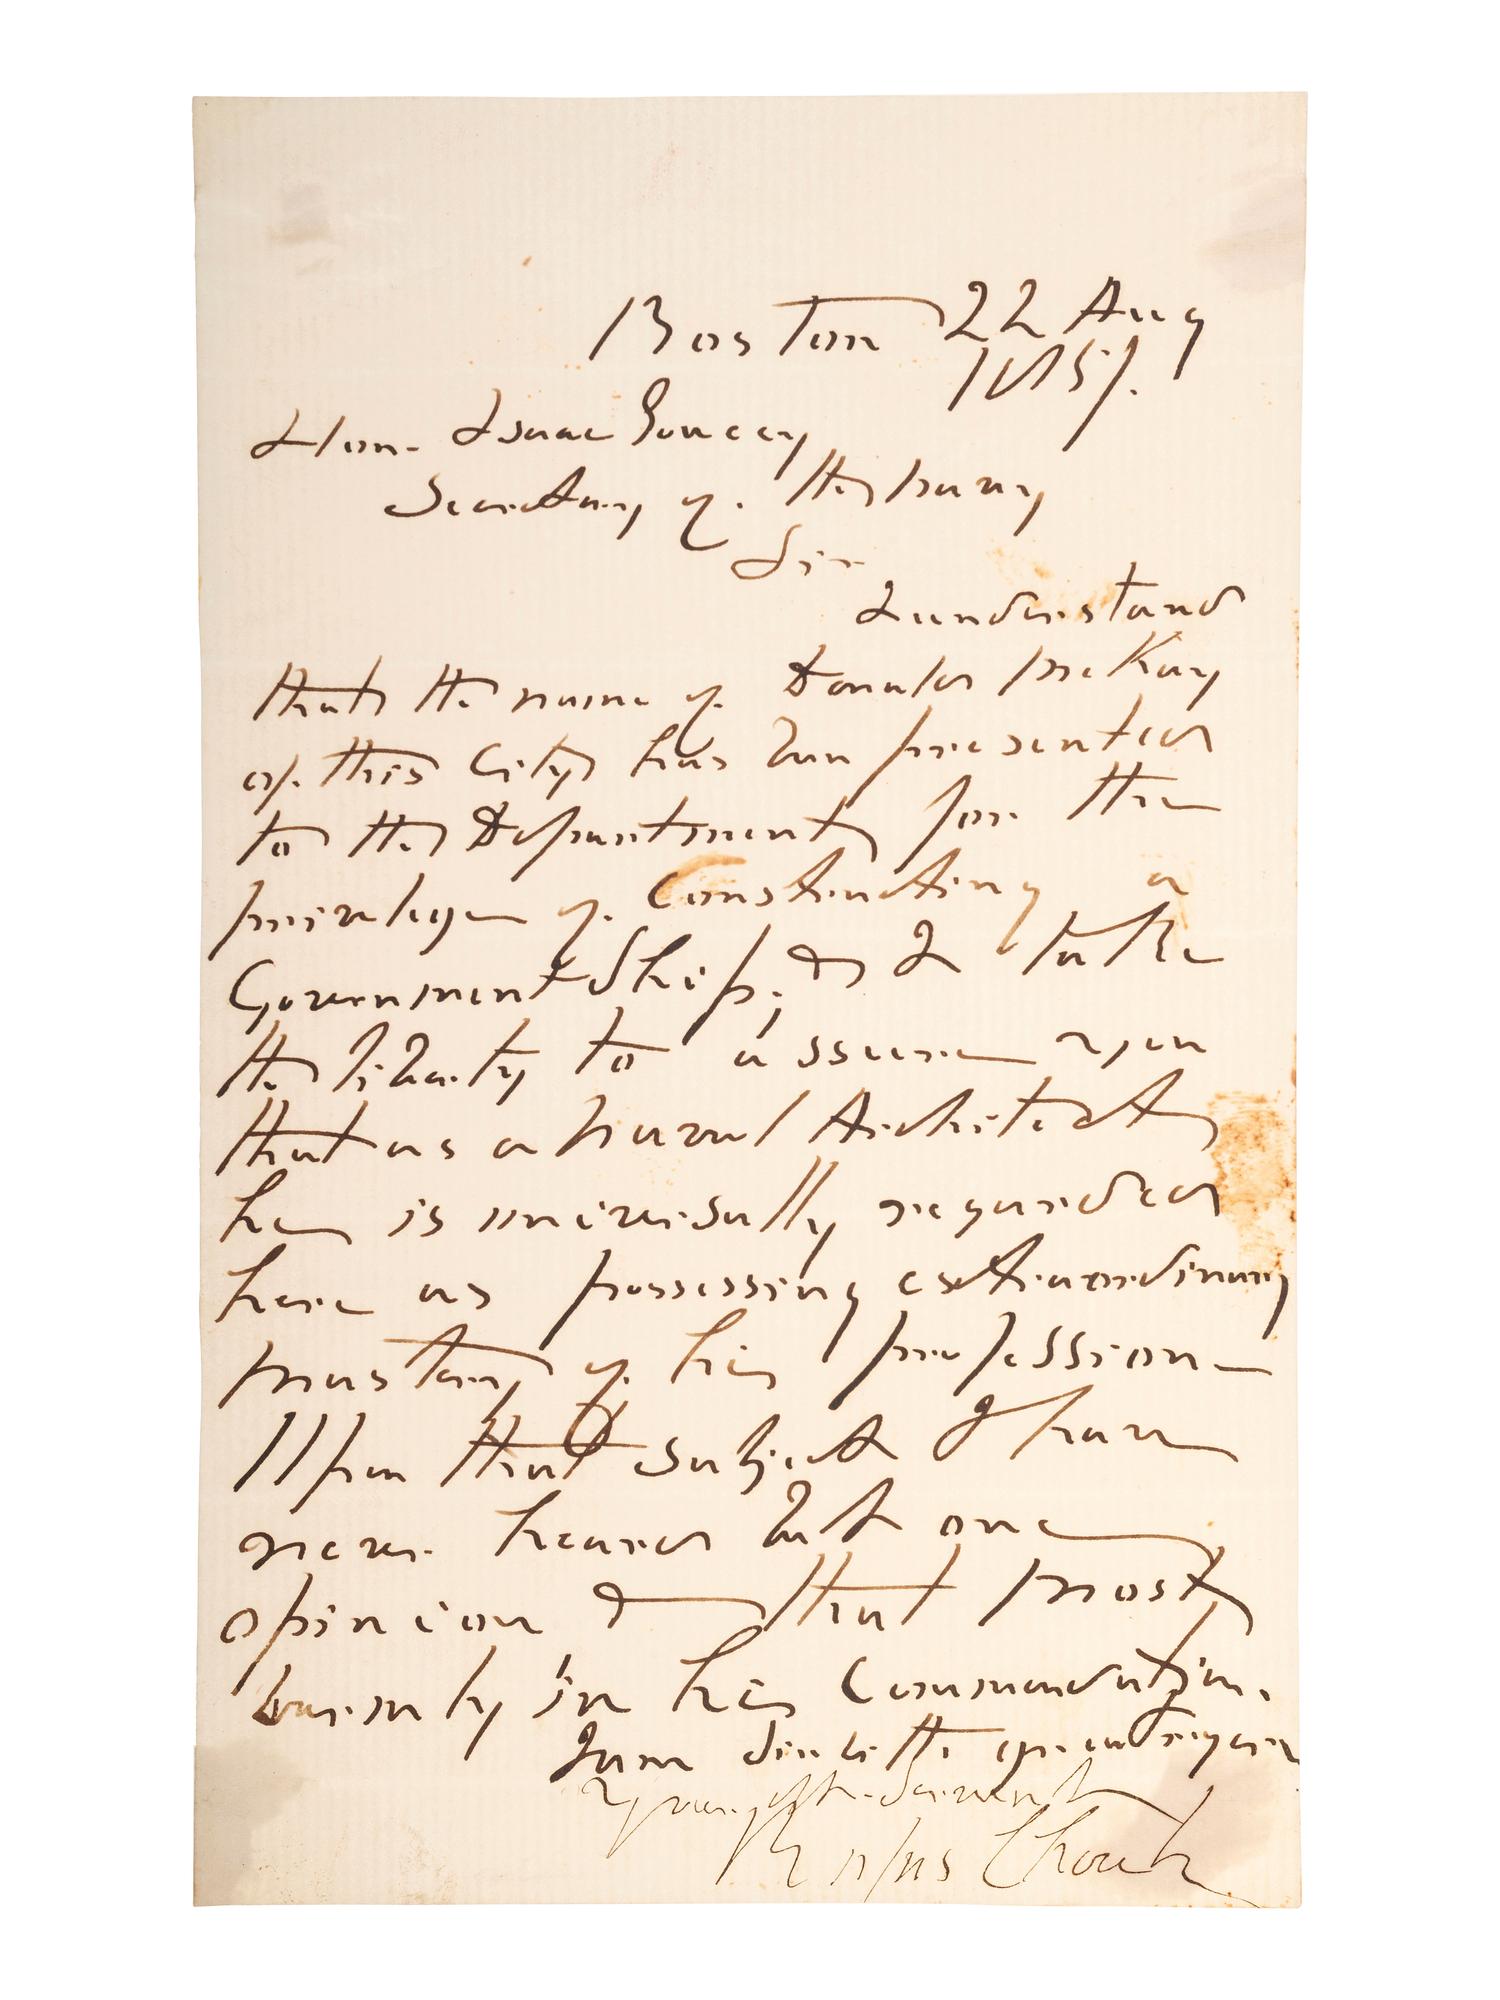 Boston 22 Aug
1857.
Hon. Isaac Toucey
Secretary of the Navy
Sir
I understand
that the name of Donald McKay
of this City has been presented
to the Department for the
privilege of Constructing a
Government Ship; & I take
the liberty to assure you
that as a Naval Architect
he is universally regarded
here as possessing extraordinary
mastery of his profession
Upon that subject I have
never heard but one
opinion & that most
warmly in his Commendation.
I am Sir with great regard
Your Servant
Rufus Choate